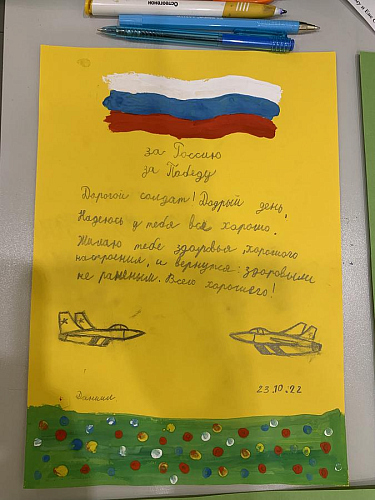 Остеогенон
за Россию
за Победу
Дорогой солдат! Добрый день,
Надеюсь у тебя все хорошо.
Желаю тебе здоровья, хорошого
настроения, и вернутся здоровыми
не раненым. Всего хорошего!
Даниил
23.10.22